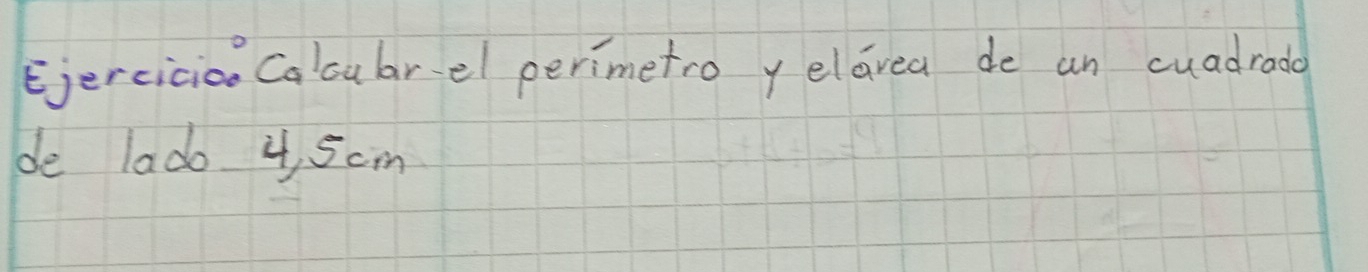 Ejercicio: Calcular el perímetro y el área de un cuadrado
de lado 4,5cm